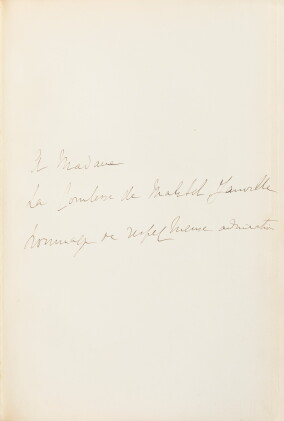 A Madame
La Comtesse de Martel Janville
hommage de respectueuse admiration